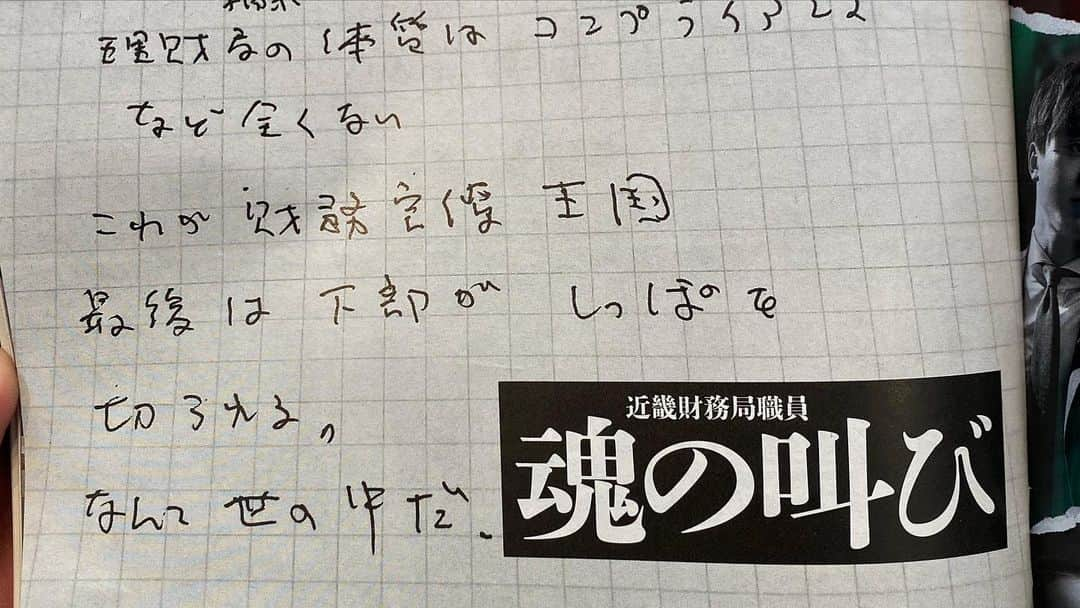 理財局の体質は コンプライアンス
など全くない
これが 財務官僚 王国
最後は 下部が しっぽを
切られる。
なんて世の中だ、
近畿財務局職員
魂の叫び